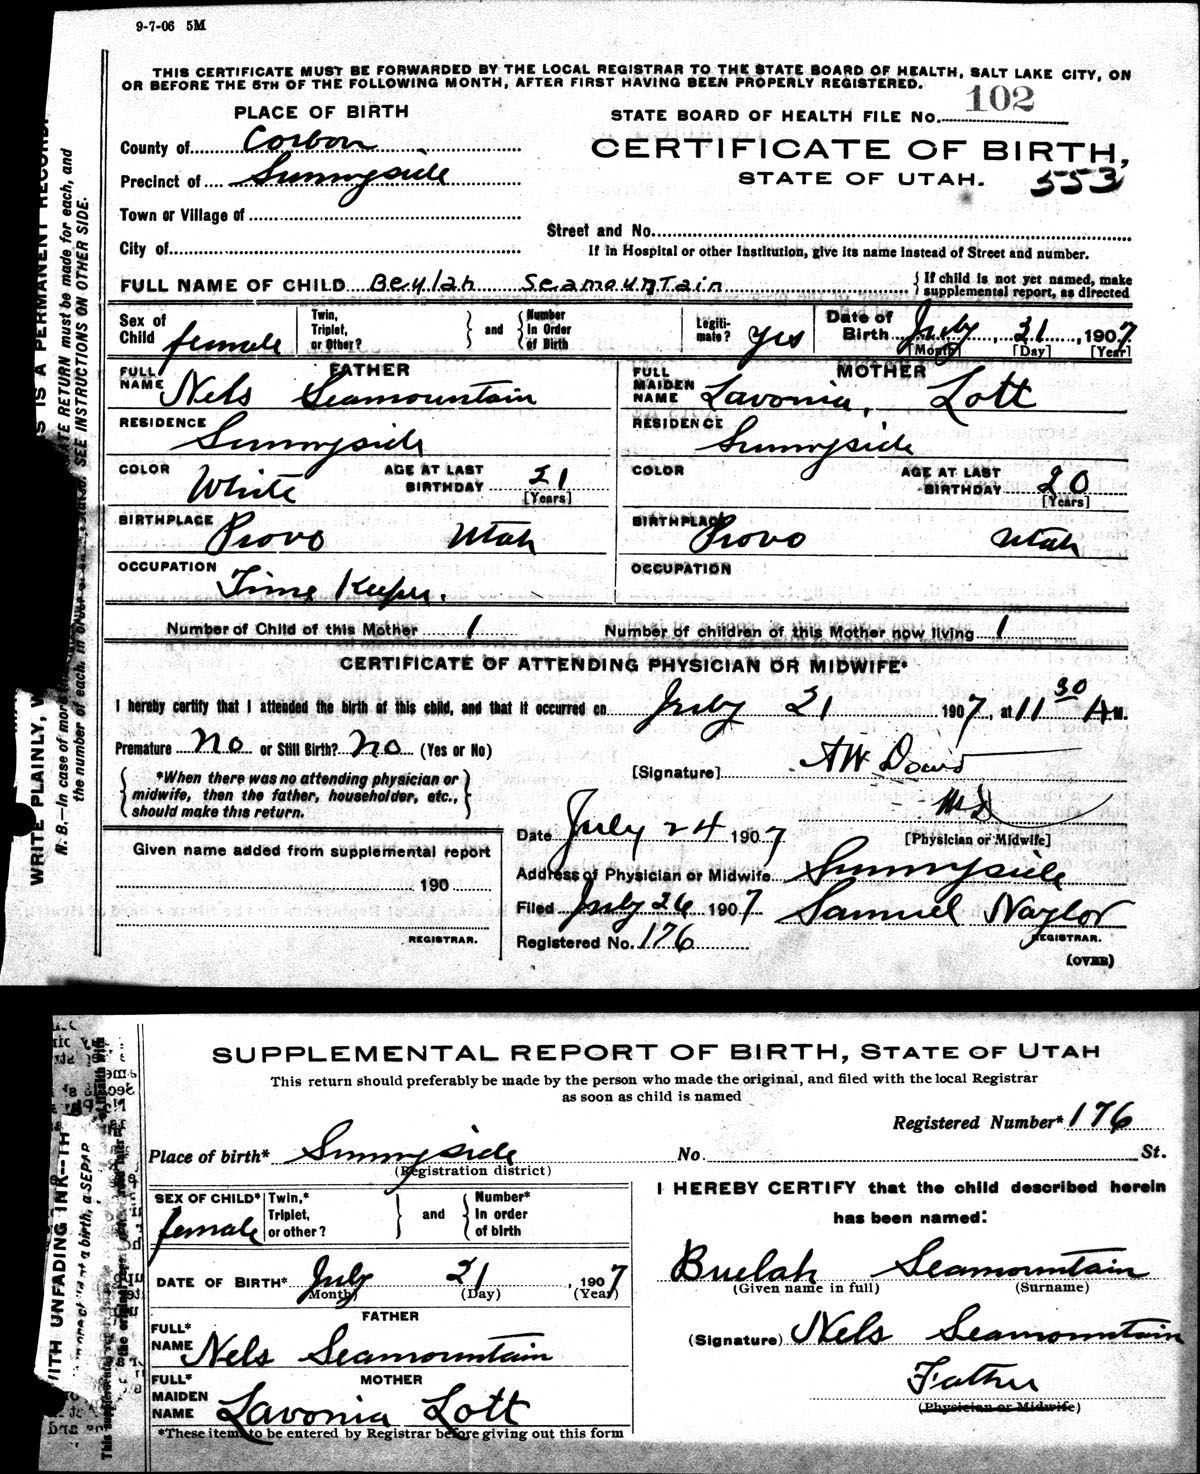 9-7-06 5M
THIS CERTIFICATE MUST BE FORWARDED BY THE LOCAL REGISTRAR TO THE STATE BOARD OF HEALTH, SALT LAKE CITY, ON
OR BEFORE THE 5TH OF THE FOLLOWING MONTH, AFTER FIRST HAVING BEEN PROPERLY REGISTERED.
PLACE OF BIRTH
STATE BOARD OF HEALTH FILE No. 102
County of Corbon
CERTIFICATE OF BIRTH,
Precinct of Sunnyside
STATE OF UTAH. 553
Town or Village of
Street and No.
City of
If in Hospital or other Institution, give its name instead of Street and number.
FULL NAME OF CHILD Beylah Seamountain { If child is not yet named, make supplemental report, as directed
Sex of Child female Twin, Triplet, or Other? } and { Number In Order of Birth Legiti-mate? yes Date of Birth July 21, 1907
[Month] [Day] [Year]
FATHER MOTHER
FULL NAME Nels Seamountain FULL MAIDEN NAME Lavonia, Lott
RESIDENCE Sunnyside RESIDENCE Sunnyside
COLOR White AGE AT LAST BIRTHDAY 21 [Years] COLOR AGE AT LAST BIRTHDAY 20 [Years]
BIRTHPLACE Provo Utah BIRTHPLACE Provo Utah
OCCUPATION Time Keeper. OCCUPATION
Number of Child of this Mother 1 Number of children of this Mother now living 1
CERTIFICATE OF ATTENDING PHYSICIAN OR MIDWIFE*
I hereby certify that I attended the birth of this child, and that it occurred on July 21 1907, at 11 30 A.M.
Premature no or Still Birth? no (Yes or No)
[Signature] A W Dowd
M D
[Physician or Midwife]
{ *When there was no attending physician or
midwife, then the father, householder, etc.,
should make this return. }
Date July 24 1907
Given name added from supplemental report
190
REGISTRAR.
Address of Physician or Midwife Sunnyside
Filed July 26 1907 Samuel Naylor
REGISTRAR.
Registered No. 176
(OVER)
WRITE PLAINLY, W
IS IS A PERMANENT RECORD.
N. B.—In case of more
ATE RETURN must be made for each, and
the number of each, in order
SEE INSTRUCTIONS ON OTHER SIDE.
SUPPLEMENTAL REPORT OF BIRTH, STATE OF UTAH
This return should preferably be made by the person who made the original, and filed with the local Registrar
as soon as child is named
Registered Number* 176
Place of birth* Sunnyside No. St.
(Registration district)
SEX OF CHILD* female Twin,* Triplet, or other? } and { Number* In order of birth
I HEREBY CERTIFY that the child described herein
has been named:
DATE OF BIRTH* July 21, 1907
(Month) (Day) (Year)
Buelah Seamountain
(Given name in full) (Surname)
FATHER
FULL* NAME Nels Seamountain
(Signature) Nels Seamountain
Father
(Physician or Midwife)
MOTHER
FULL* MAIDEN NAME Lavonia Lott
*These items to be entered by Registrar before giving out this form
WITH UNFADING INK—TH